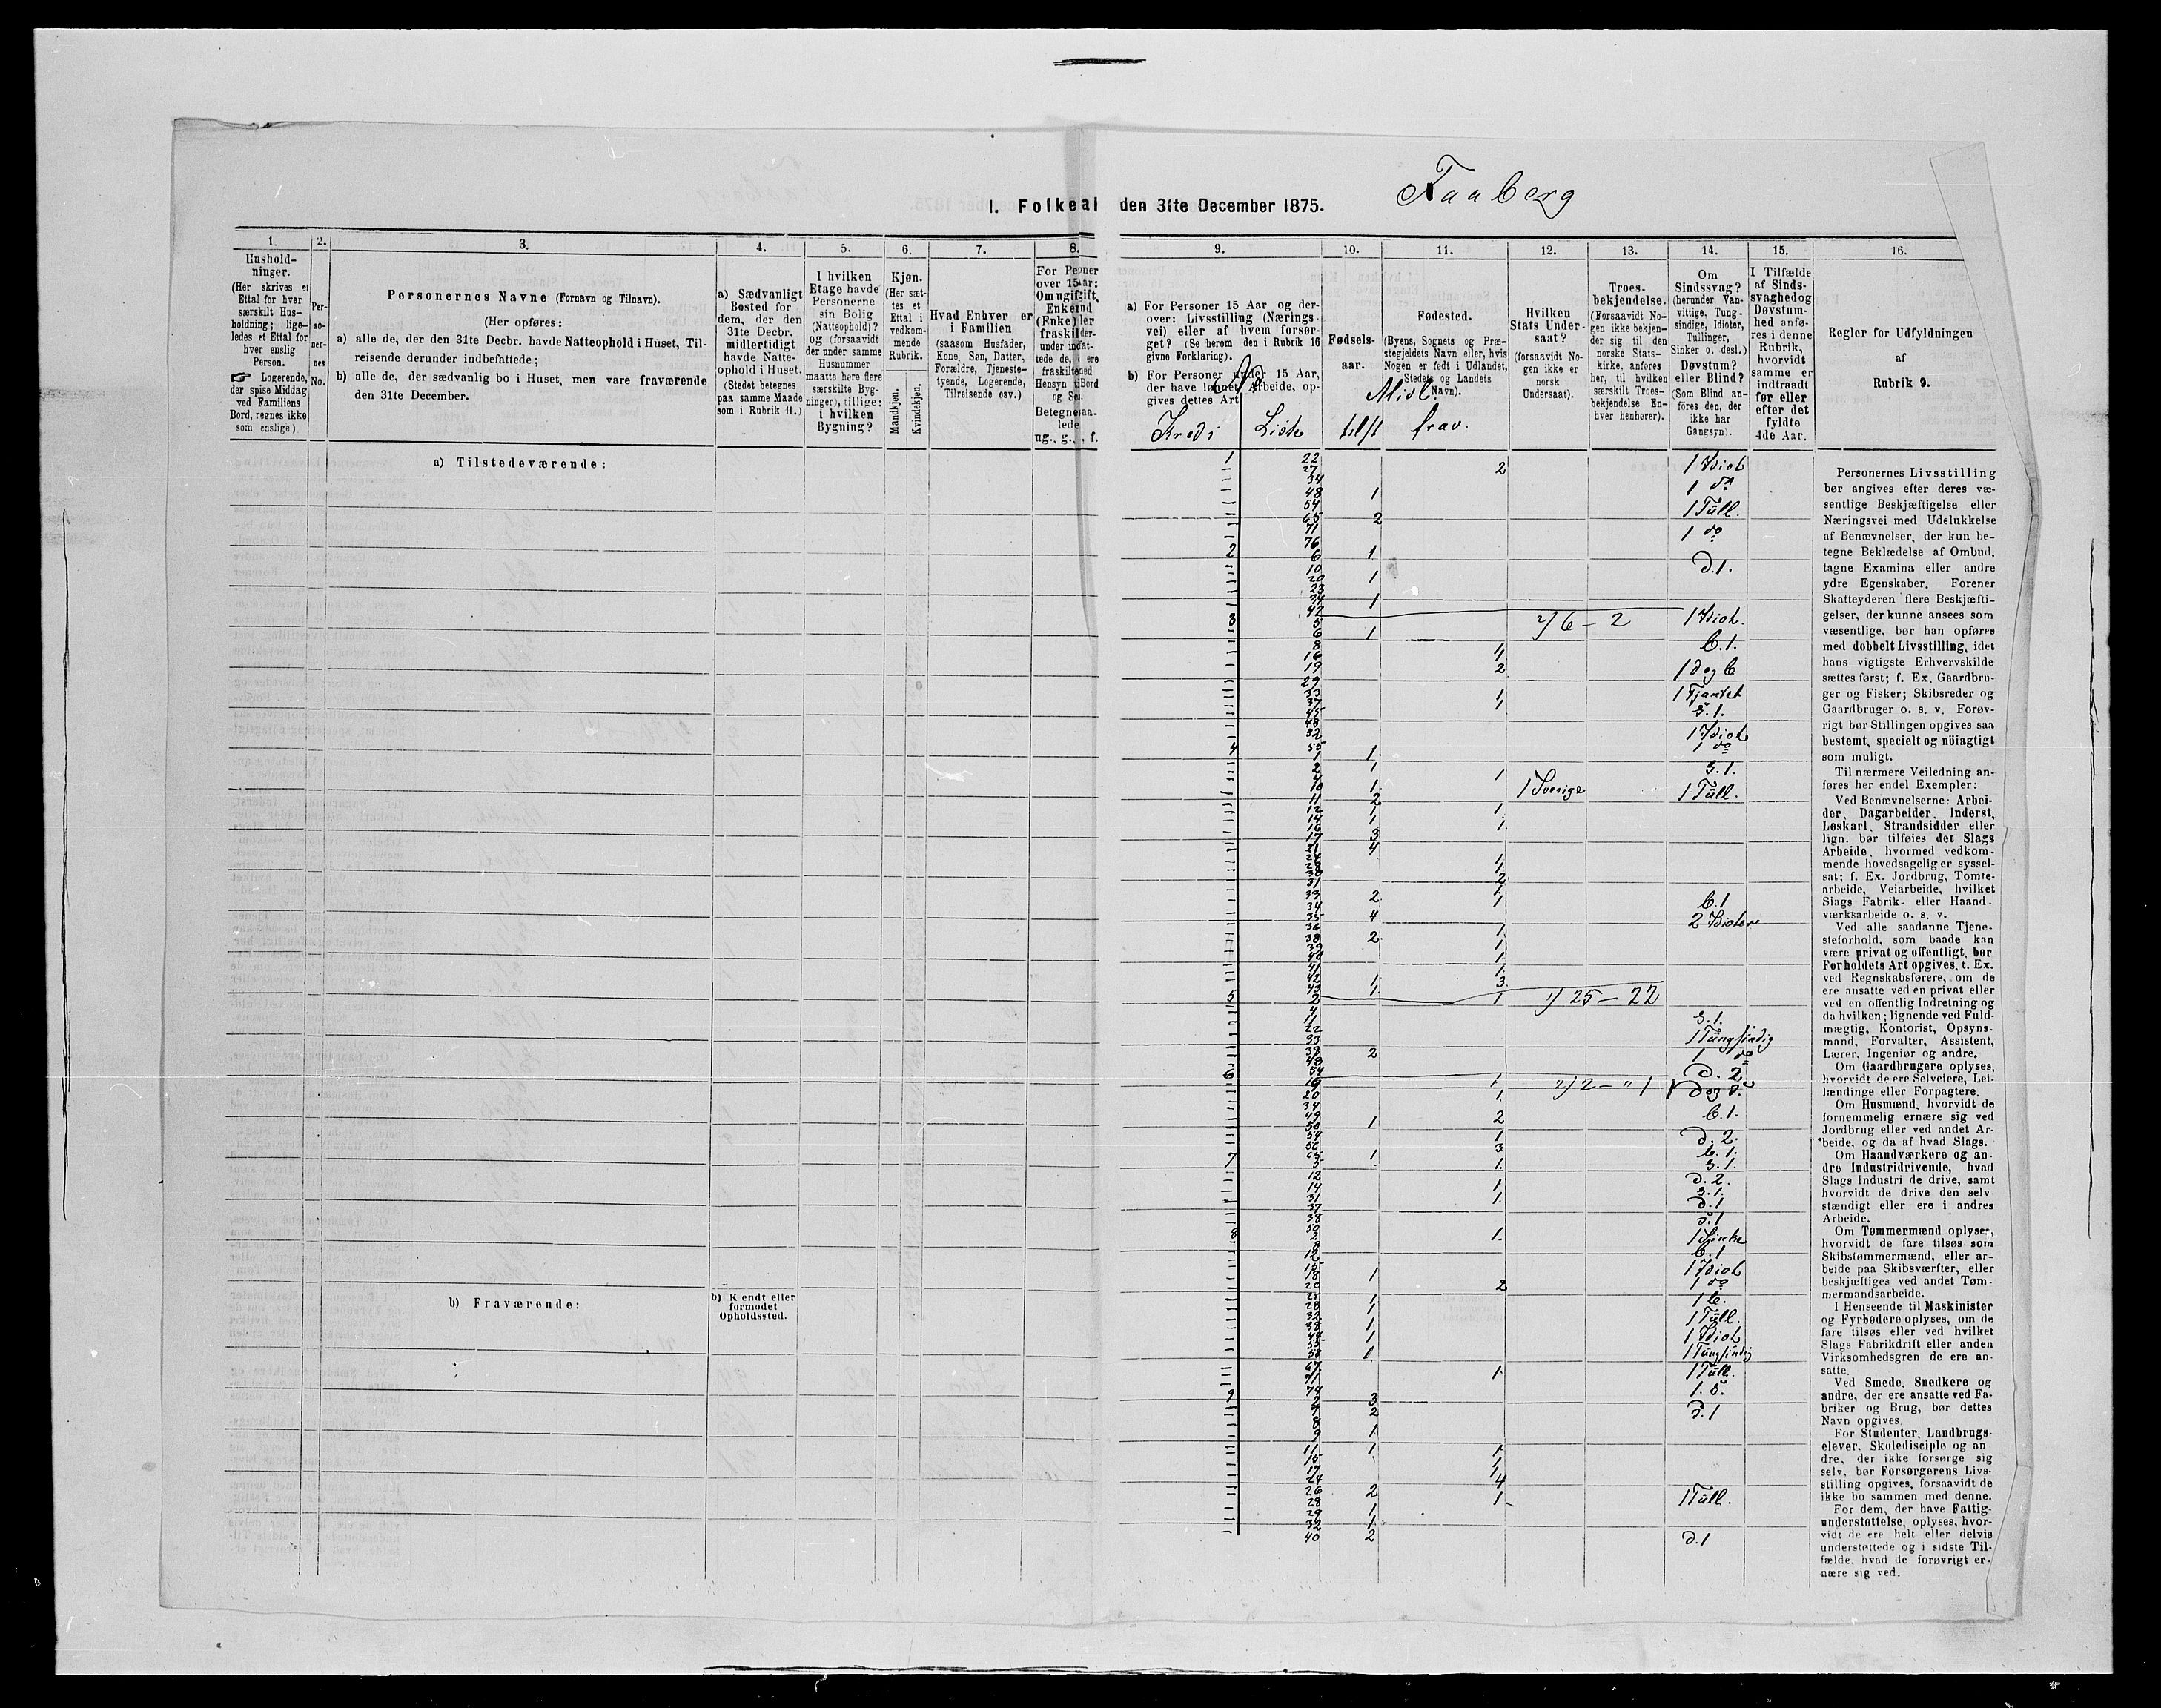 Faaberg
1. Folketæl den 31te December 1875.
1.
2.
3.
4.
5.
6.
7.
8.
9.
10.
11.
12.
13.
14.
15.
16.
Hushold-
ninger.
(Her skrives et
Ettal for hver
særskilt Hus-
holdning; lige-
ledes et Ettal for
hver enslig
Person.
☞ Logerende,
der spise Middag
ved Familiens
Bord, regnes ikke
som enslige)
Per-
so-
ner-
nes
No.
Personernes Navne (Fornavn og Tilnavn).
(Her opføres:
a) alle de, der den 31te Decbr. havde Natteophold i Huset, Til-
reisende derunder indbefattede;
b) alle de, der sædvanlig bo i Huset, men vare fraværende
den 31te December.
a) Sædvanligt
Bosted for
dem, der den
31te Decbr.
midlertidigt
havde Natte-
ophold i Huset.
(Stedet betegnes
paa samme Maade
som i Rubrik 11.)
I hvilken
Etage havde
Personerne
sin Bolig
(Natteophold)?
og (forsaavidt
der under samme
Husnummer
maatte høre flere
særskilte Byg-
ninger), tillige:
i hvilken
Bygning?
Kjøn.
(Her sæt-
tes et
Ettal i
vedkom-
mende
Rubrik.
Mandkjøn.
Kvindekjøn.
Hvad Enhver er
i Familien
(saasom Husfader,
Kone, Søn, Datter,
Forældre, Tjeneste-
tyende, Logerende,
Tilreisende osv.)
a) For Personer 15 Aar og der-
over: Livsstilling (Nærings-
vei) eller af hvem forsør-
get? (Se herom den i Rubrik 16
givne Forklaring).
b) For Personer under 15 Aar,
der have lønnet Arbeide, op-
gives dettes Art.
Fødsels-
aar.
Fødested.
(Byens, Sognets og Præ-
stegjeldets Navn eller, hvis
Nogen er født i Udlandet,
Stedets og Landets
Navn).
Hvilken
Stats Under-
saat?
(forsaavidt No-
gen ikke er
norsk
Undersaat).
Troes-
bekjendelse.
(Forsaavidt No-
gen ikke bekjen-
der sig til den
norske Stats-
kirke, anføres
her, til hvilken
særskilt Troes-
bekjendelse En-
hver henhører).
Om
Sindssvag?
(herunder Van-
vittige, Tung-
sindige, Idioter,
Tullinger,
Sinker o. desl.)
Døvstum?
eller Blind?
(Som Blind an-
føres den, der
ikke har
Gangsyn).
I Tilfælde
af Sinds-
svaghedog
Døvstum-
hed anfø-
res i denne
Rubrik,
hvorvidt
samme er
indtraadt
før eller
efter det
fyldte
4de Aar.
Regler for Udfyldningen
af
Rubrik 9.
No
Midl.
Kreds
Liste
tilst
frav.
a) Tilstedeværende:
1 22 1 Idiot
27 2
34 1 do
48 1
54 1 Tull.
65 2
71 1 do
76
2 6 1
10 D.1.
20 1
23
34 1
42
2) 6 - 2
3 5 1 Idiot.
6 1
8 B.1.
16 1
19 2 1 D og B
29
33 1 1 Fjantet
37 1
45 S.1.
48
52 1 Idiot
4 55 1 do
1 1
2 1 S.1.
4 1
10 1 1 Sverige 1 Tull.
11 2
12 1 1
14 1
16 1
17 3
21 4
31
33 2
34 1 B.1
35 4 2 Idioter
36
38 2
39 1
40 1
41 1
42 1 3
43 1
1) 25 - 22
5 2 1
4
11 S.1.
22 1 Tungsindig
33
38 2 1 do
48
54 D. 2.
6 16 1 2) 2 - " 1 1 D og S.
20 1
34 B.1.
49 2
50 1
54 1 D. 2.
56 3
65 1 B.1.
7 5 1 S.1.
12 D. 2.
14 1 S.1.
31 1 D.1
37
38 S.1
50 1 Sinke
8 2 1
12 B.1
15 1 Idiot
18 1 1 do
20 2
28 1
32 1 Tull.
38 1
1 Idiot
58 1 1 Tungsindig
67 1 1 Tull.
71
74 1. S.
9 2 3
7 2 D.1
8
9 1
11 1 1
15 1
17 1
24 4
26 2
28 1 1 Tull.
29 1
32 1
40 2 D.1
b) Fraværende:
b) Kjendt eller
formodet
Opholdssted.
Personernes Livsstilling
bør angives efter deres væ-
sentlige Beskjæftigelse eller
Næringsvei med Udelukkelse
af Benævnelser, der kun be-
tegne Beklædelse af Ombud,
tagne Examina eller andre
ydre Egenskaber. Forener
Skatteyderen flere Beskjæfti-
gelser, der kunne ansees som
væsentlige, bør han opføres
med dobbelt Livsstilling, idet
hans vigtigste Erhvervskilde
sættes først; f. Ex. Gaardbru-
ger og Fisker; Skibsreder og
Gaardbruger o. s. v. Forøv-
rigt bør Stillingen opgives saa
bestemt, specielt og nöiagtigt
som muligt.
Til nærmere Veiledning an-
føres her endel Exempler:
Ved Benævnelserne: Arbei-
der, Dagarbeider, Inderst,
Løskarl, Strandsidder eller
lign. bør tilføies det Slags
Arbeide, hvormed vedkom-
mende hovedsagelig er syssel-
sat; f. Ex. Jordbrug, Tomte-
arbeide, Veiarbeide, hvilket
Slags Fabrik- eller Haand-
værksarbeide o. s. v.
Ved alle saadanne Tjene-
steforhold, som baade kan
være privat og offentligt, bør
Forholdets Art opgives, t. Ex.
ved Regnskabsførere, om de
ere ansatte ved en privat eller
ved en offentlig Indretning og
da hvilken; lignende ved Fuld-
mægtig, Kontorist, Opsyns-
mand, Forvalter, Assistent,
Lærer, Ingeniør og andre.
Om Gaardbrugere oplyses,
hvorvidt de ere Selveiere, Lei-
lændinge eller Forpagtere.
Om Husmænd, hvorvidt de
fornemmelig ernære sig ved
Jordbrug eller ved andet Ar-
beide, og da af hvad Slags.
Om Haandværkere og an-
dre Industridrivende, hvad
Slags Industri de drive, samt
hvorvidt de drive den selv-
stændigt eller ere i andres
Arbeide.
Om Tømmermænd oplyses,
hvorvidt de fare tilsøs som
Skibstømmermænd, eller ar-
beide paa Skibsværfter, eller
beskjæftiges ved andet Tøm-
mermandsarbeide.
I Henseende til Maskinister
og Fyrbødere oplyses, om de
fare tilsøs eller ved hvilket
Slags Fabrikdrift eller anden
Virksomhedsgren de ere an-
satte.
Ved Smede, Snedkere og
andre, der ere ansatte ved Fa-
briker og Brug, bør dettes
Navn opgives.
For Studenter, Landbrugs-
elever, Skoledisciple og an
dre, der ikke forsørge sig
selv, bør Forsørgerens Livs-
stilling opgives, forsaavidt de
ikke bo sammen med denne.
For dem, der have Fattig-
understøttelse, oplyses, hvor-
vidt de ere helt eller delvis
understøttede og i sidste Til-
fælde, hvad de forøvrigt er-
nære sig ved.